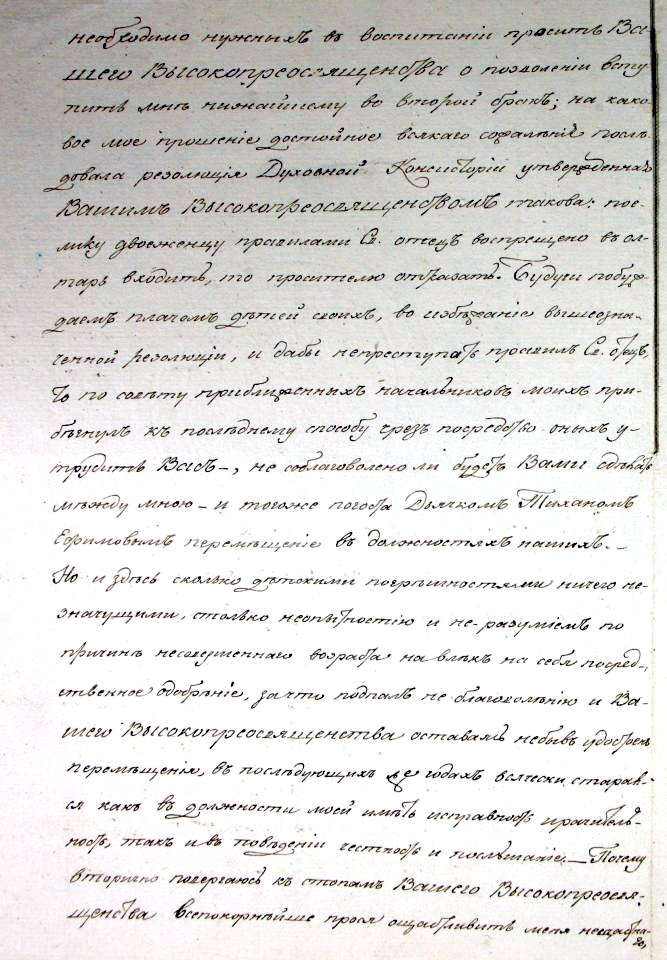 необходимо нужныхъ въ воспитаніи проситъ Ва-
шего Высокопреосвященства о позволеніи всту-
пить мнѣ нижайшему во второй бракъ; на како-
вое мое прошеніе достойное всякаго сожалѣнія послѣ-
довала резолюція Духовной Консисторіи утвержденная
Вашимъ Высокопреосвященствомъ такова: пое-
лику двоеженцу правилами Св. отецъ воспрещено въ ол-
тарь входить, то просителю отказать. Будучи побуж-
даемъ плачемъ дѣтей своихъ, во избѣжаніе вышеозна-
ченной резолюціи, и дабы непреступать правилъ Св. отецъ,
то по совѣту приближенныхъ начальниковъ моихъ при-
бѣгнулъ къ послѣднему способу чрезъ посредство оныхъ у-
трудить Васъ, не соблаговолено ли будетъ Вами сдѣлать
мѣжду мною и тогоже погоста Дьячкомъ Тиханомъ
Ефимовымъ перемѣщеніе въ должностяхъ нашихъ.
Но и здѣсь сколько дѣтскими погрѣшностями ничего не-
значущими, столько неопытностію и не-разуміемъ по
причинѣ несовершеннаго возраста навлѣкъ на себя посред-
ственное одобрѣніе, за что подпалъ не благоволѣнію и Ва-
шего Высокопреосвященства оставаясь небывъ удостоенъ
перемѣщенія, въ послѣдующихъ же годахъ всячески старал-
ся какъ въ должности моей имѣть исправность и рачитель-
ность, такъ и въ повѣденіи честность и послушаніе. Почему
вторично повергаюсь къ стопамъ Вашего Высокопреосвя-
щенства всепокорнѣйше прося ощастливить меня нещастна-
го,